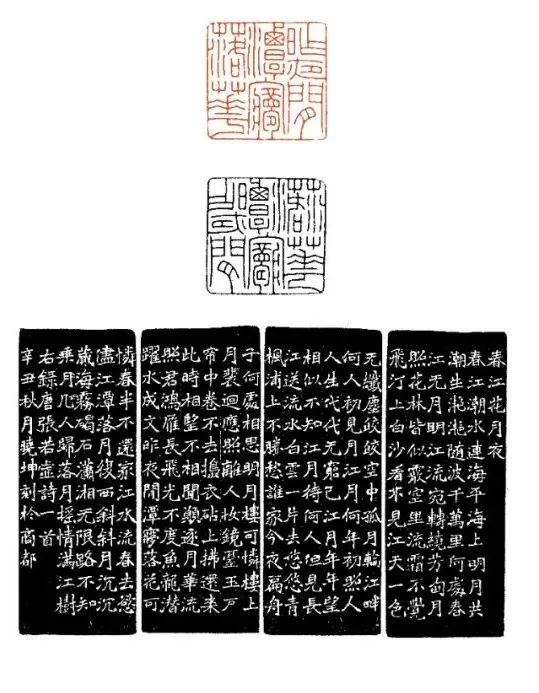 昨夜閒潭夢落華
昨夜閒潭夢落華
春江花月夜
春江潮水連海平海上明月共
潮生灔灔隨波千萬里何處春
江无月明江流宛轉繞芳甸月
照花林皆似霰空里流霜不覺
飛汀上白沙看不見江天一色
无纖塵皎皎空中孤月輪江畔
何人初見月江月何年初照人
人生代代无窮已江月年年望
相似不知江月待何人但見長
江送流水白雲一片去悠悠青
楓浦上不勝愁誰家今夜扁舟
子何處相思明月樓可憐樓上
月裴迴應照離人妝鏡臺玉戶
帘中卷不去搗衣砧上拂還來
此時相望不相聞願逐月華流
照君鴻雁長飛光不度魚龍潛
躍水成文昨夜閒潭夢落花可
憐春半不還家江水流春去慾
盡江潭落月復西斜斜月沉沉
藏海霧碣石瀟湘无限路不知
乘月几人歸落月搖情滿江樹
右錄唐張若虛詩一首
辛丑秋月曉坤刻於商都